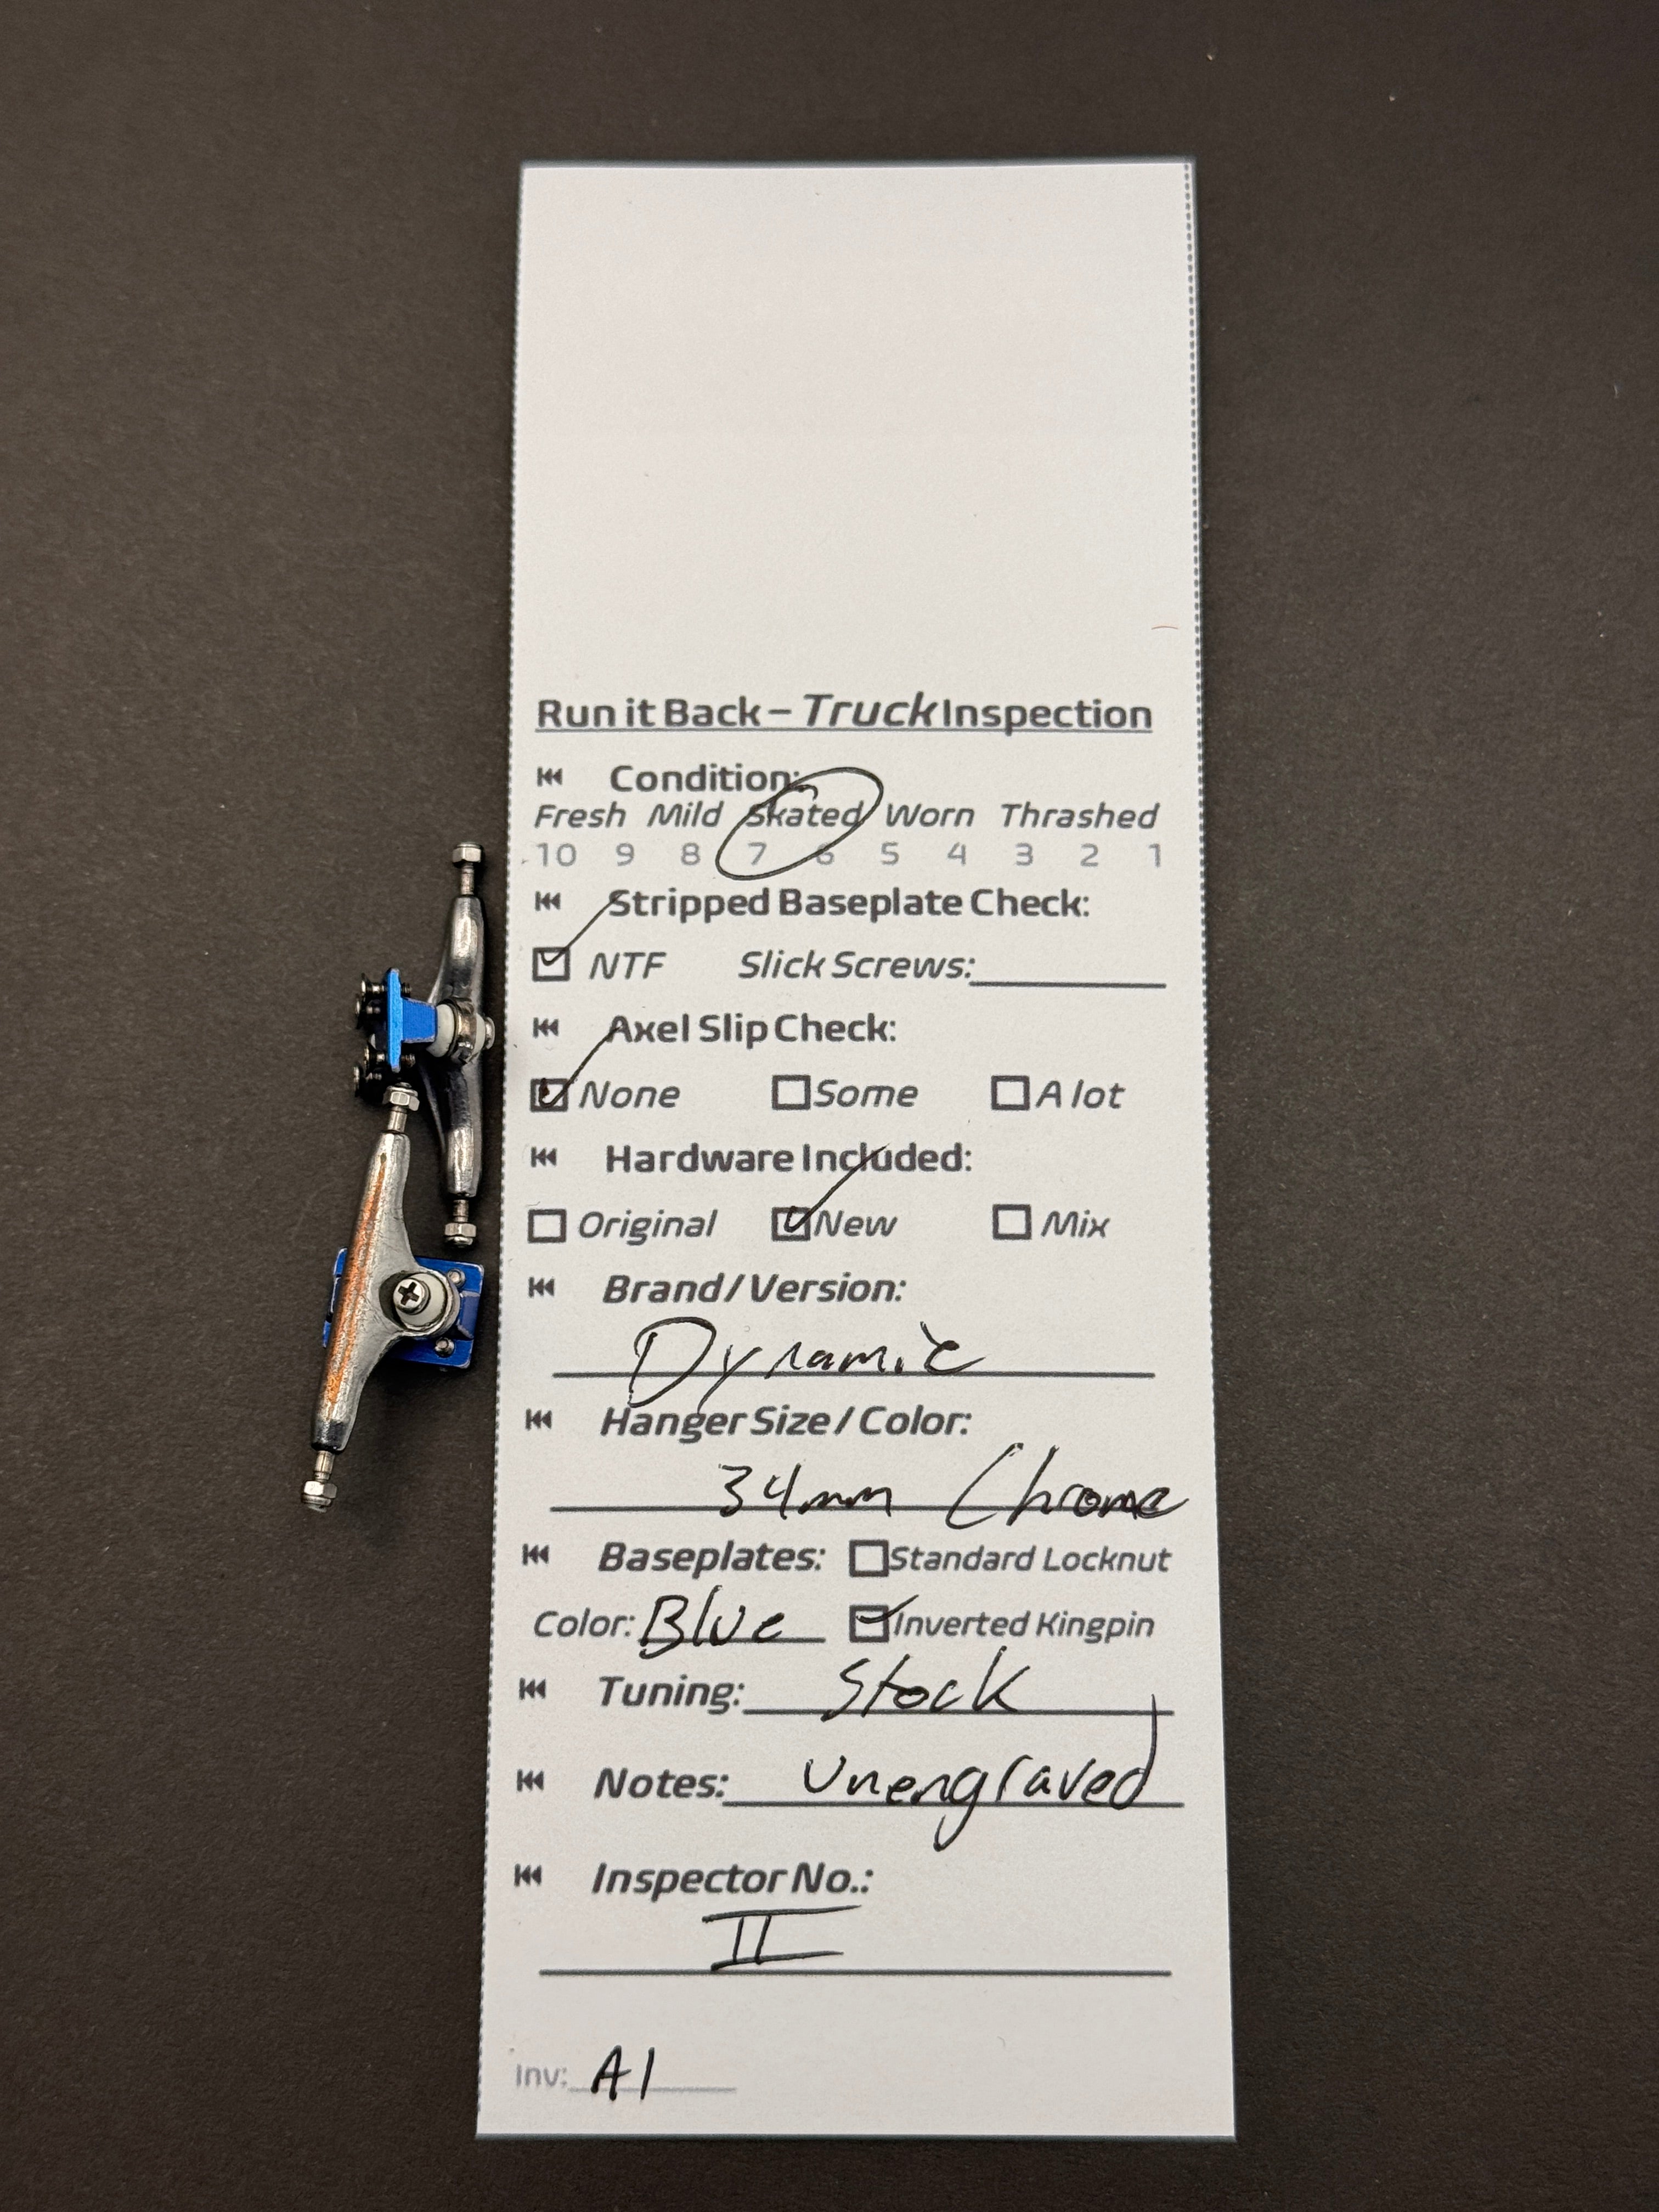 Run it Back – Truck Inspection
Condition:
Fresh Mild Skated Worn Thrashed
10 9 8 7 6 5 4 3 2 1
Stripped Baseplate Check:
NTF Slick Screws:
Axel Slip Check:
None Some A lot
Hardware Included:
Original New Mix
Brand / Version:
Dynamic
Hanger Size / Color:
34mm Chrome
Baseplates: Standard Locknut
Color: Blue Inverted Kingpin
Tuning: Stock
Notes: Unengraved
Inspector No.:
II
Inv: A1